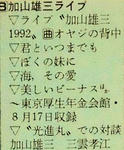 B加山雄三ライブ
▽ライブ〝加山雄三
1992〟曲オヤジの背中
▽君といつまでも
▽ぼくの妹に
▽海、その愛
▽美しいビーナスほか
～東京厚生年金会館・
8月17日収録
▽〝光進丸〟での対談
加山雄三　三雲孝江